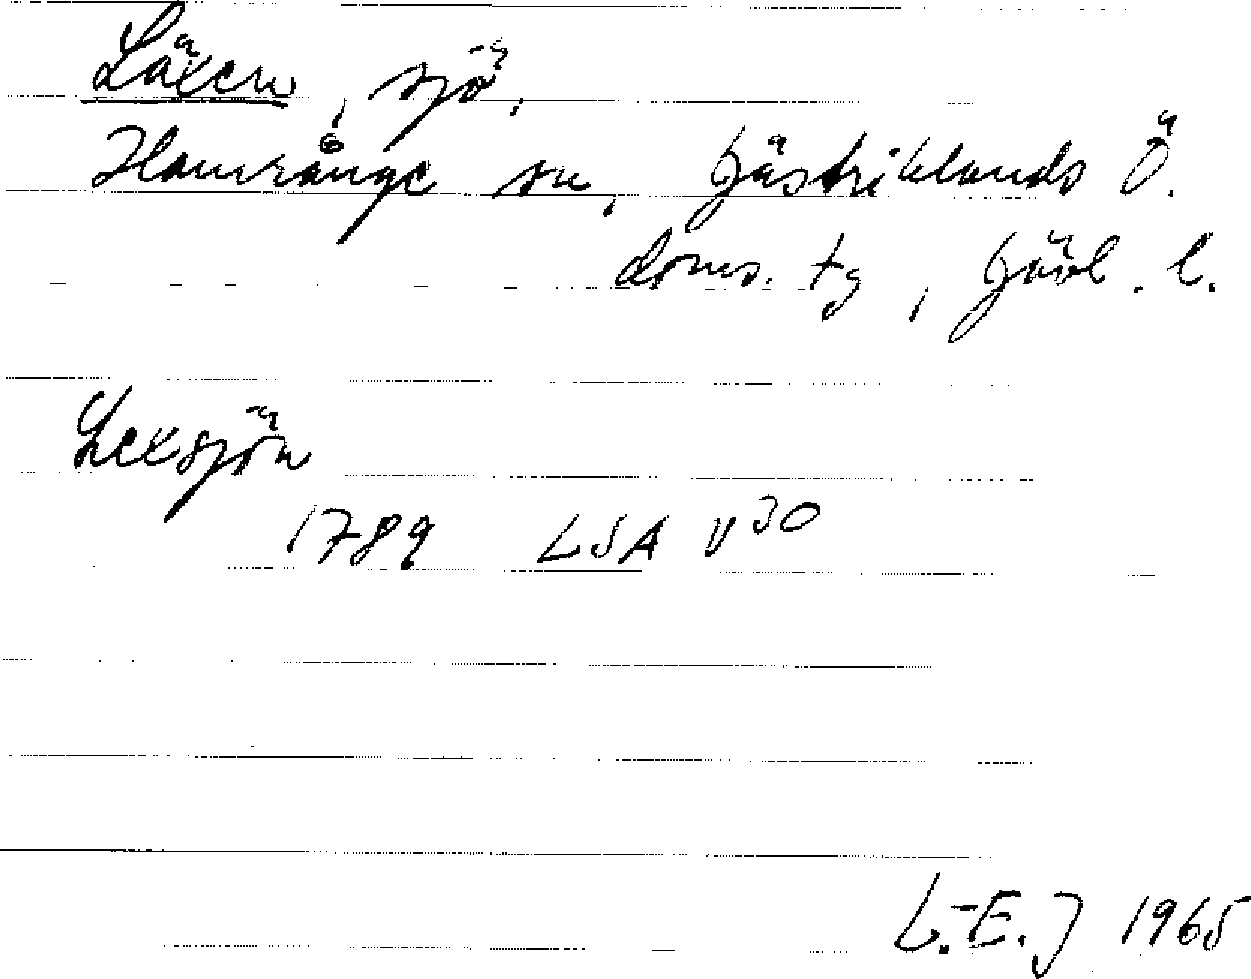 Läxen, sjö,
Hamrånge sn, Gästriklands Ö.
doms. tg, Gävl. l.
Lexsjön
1789 LSA V30
L.-E. J 1965